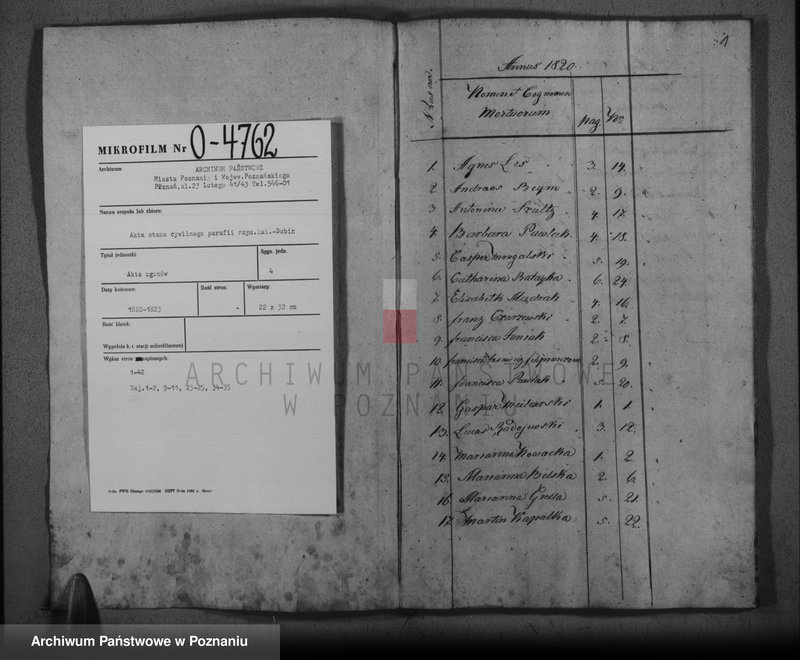 MIKROFILM Nr O-4762
Archiwum
ARCHIWUM PAŃSTWOWE
Miasta Poznania i Wojew. Poznańskiego
Poznań, ul. 23 Lutego 41/43 Tel. 546-01
Nazwa zespołu lub zbioru:
Akta stanu cywilnego parafii rzym.kat.-Dubin
Tytuł jednostki:
Akta zgonów
Sygn. jedn.
4
Daty końcowe:
1820-1823
Ilość stron:
-
Wymiary:
22 x 32 cm
Ilość klatek:
Wypełnia k. t. stacji mikrofilmowej
Wykaz stron zapisanych:
1-42
Rej. 1-2, 9-11, 23-25, 34-35
Annus 1820.
Nomen et Cognomen
Mortuorum
pag.
Nr.
1. Agnes Lis 3. 14.
2. Andreas Beym 2. 9.
3. Antonina Szultz 4. 17.
4. Barbara Pawlak 4. 18.
5. Casper 5. 19.
6. Catharina Batayka 6. 24.
7. Elisabeth Mądrak 4. 16.
8. franz Czarzewski 2. 7.
9. francisca Janiak 2. 8.
10. 2. 9.
11. francisca Pawlak 5. 20.
12. Gaspar 1. 1.
13. Lucas Radojewski 3. 12.
14. Marianna Nowacka 1. 2.
15. Marianna Bilska 2. 6.
16. Marianna 5. 21.
17. Martin Kapałka 5. 22.
ARCHIWUM PAŃSTWOWE
W POZNANIU
Archiwum Państwowe w Poznaniu